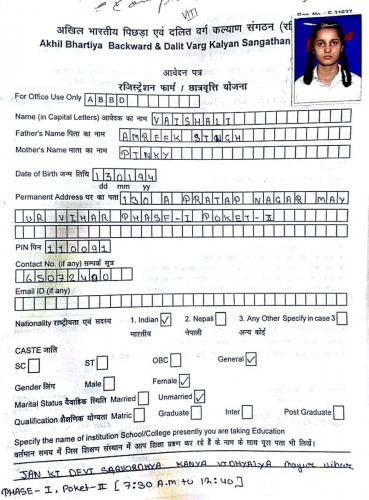 VIJ
अखिल भारतीय पिछड़ा एवं दलित वर्ग कल्याण संगठन
Akhil Bhartiya Backward & Dalit Varg Kalyan Sangathan
आवेदन पत्र
रजिस्ट्रेशन फार्म / छात्रवृत्ति योजना
For Office Use Only A B B D
Name (in Capital Letters) आवेदक का नाम VAISHALI
Father's Name पिता का नाम AMREEK SINGH
Mother's Name माता का नाम PINKY
Date of Birth जन्म तिथि 130194
dd mm yy
Permanent Address घर का पता 130 A PRATAP NAGAR MAY
UR VIHAR PHASE-I POKET-II
PIN पिन 110091
Contact No. (if any) सम्पर्क सूत्र
65072400
Email ID (if any)
Nationality राष्ट्रीयता एवं सदस्य 1. Indian ✓ 2. Nepali 3. Any Other Specify in case 3
भारतीय नेपाली अन्य कोई
CASTE जाति
SC ST OBC General ✓
Gender लिंग Male Female ✓
Marital Status वैवाहिक स्थिति Married Unmarried ✓
Qualification शैक्षणिक योग्यता Matric Graduate Inter Post Graduate
Specify the name of institution School/College presently you are taking Education
वर्तमान समय में जिस शिक्षण संस्थान में आप शिक्षा ग्रहण कर रहे हैं के नाम के साथ पूरा पता भी लिखें।
JAN KI DEVI SARVORDHYA KANYA VIDHYALYA Mayur vihar
PHASE-I, Poket-II [7:30 A.M to 12:40]